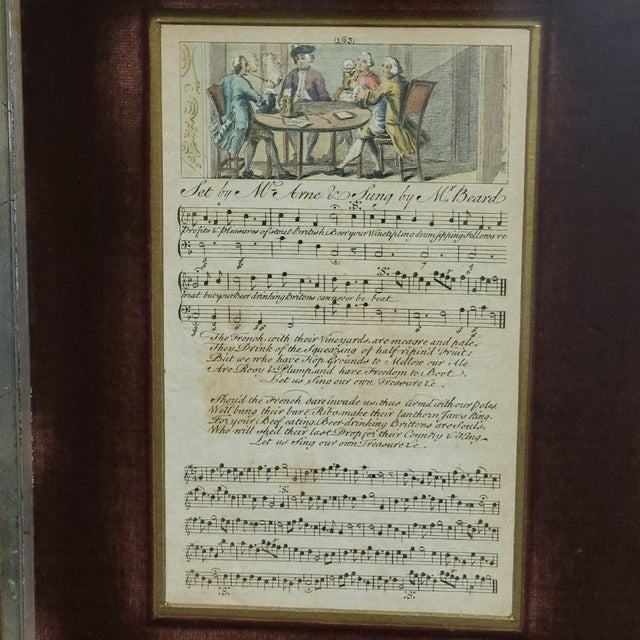 (163)
Set by Mr. Arne & Sung by Mr. Beard
Profits & pleasures of stout British Beer your Wine tipling dram sipping fellows re
treat, but your Beer drinking Britons can never be beat
The French with their Vineyards are meagre and pale,
They Drink of the Squeazing of half ripin'd Fruit;
But we who have Hop Grounds to Mellow our Ale
Are Rosy & Plump and have Freedom to Boot,
Let us sing our own Treasure &c.
Should the French dare invade us, thus Arm'd with our Poles,
We'll bang their bare Ribs, make their lanthorn Jaws Ring,
For your Beef eating, Beer-drinking Brittons are Souls,
Who will shed their last Drop for their Country & King
Let us Sing our own Treasure &c